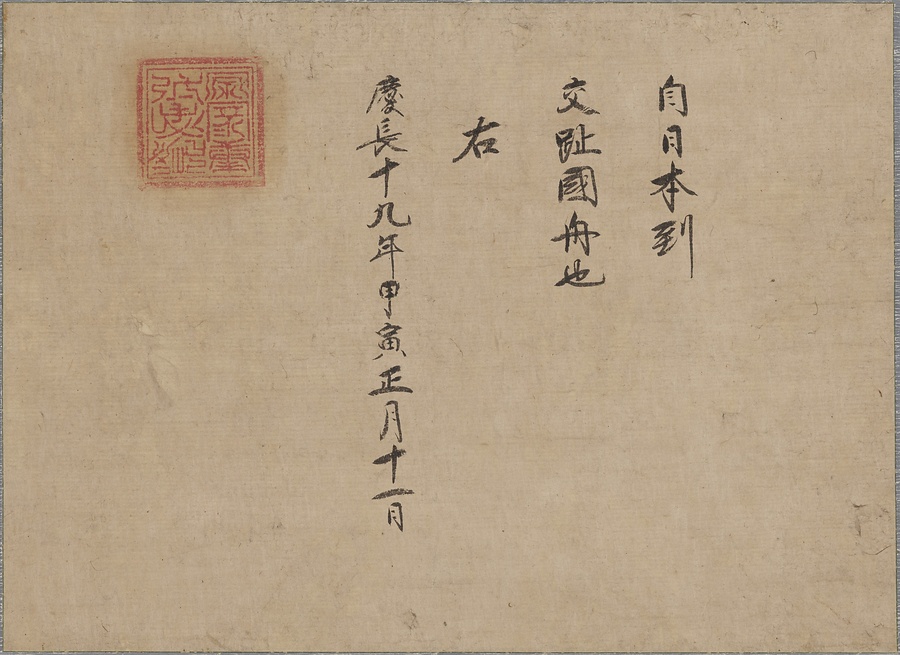 自日本到
交趾國舟也
右
慶長十九年甲寅正月十一日
源家康忠恕